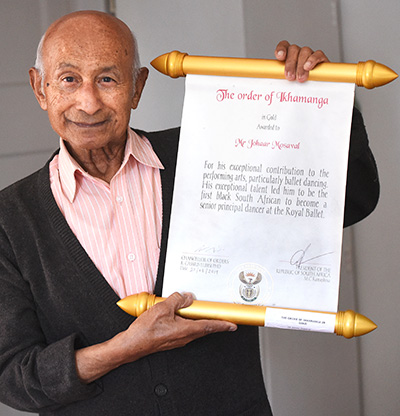 The order of Ikhamanga
in Gold
Awarded to
Mr Johaar Mosaval
For his exceptional contribution to the
performing arts, particularly ballet dancing.
His exceptional talent led him to be the
first Black South African to become a
senior principal dancer at the Royal Ballet.
CHANCELLOR OF ORDERS
PRESIDENT OF THE
REPUBLIC OF SOUTH AFRICA
THE ORDER OF IKHAMANGA IN
GOLD